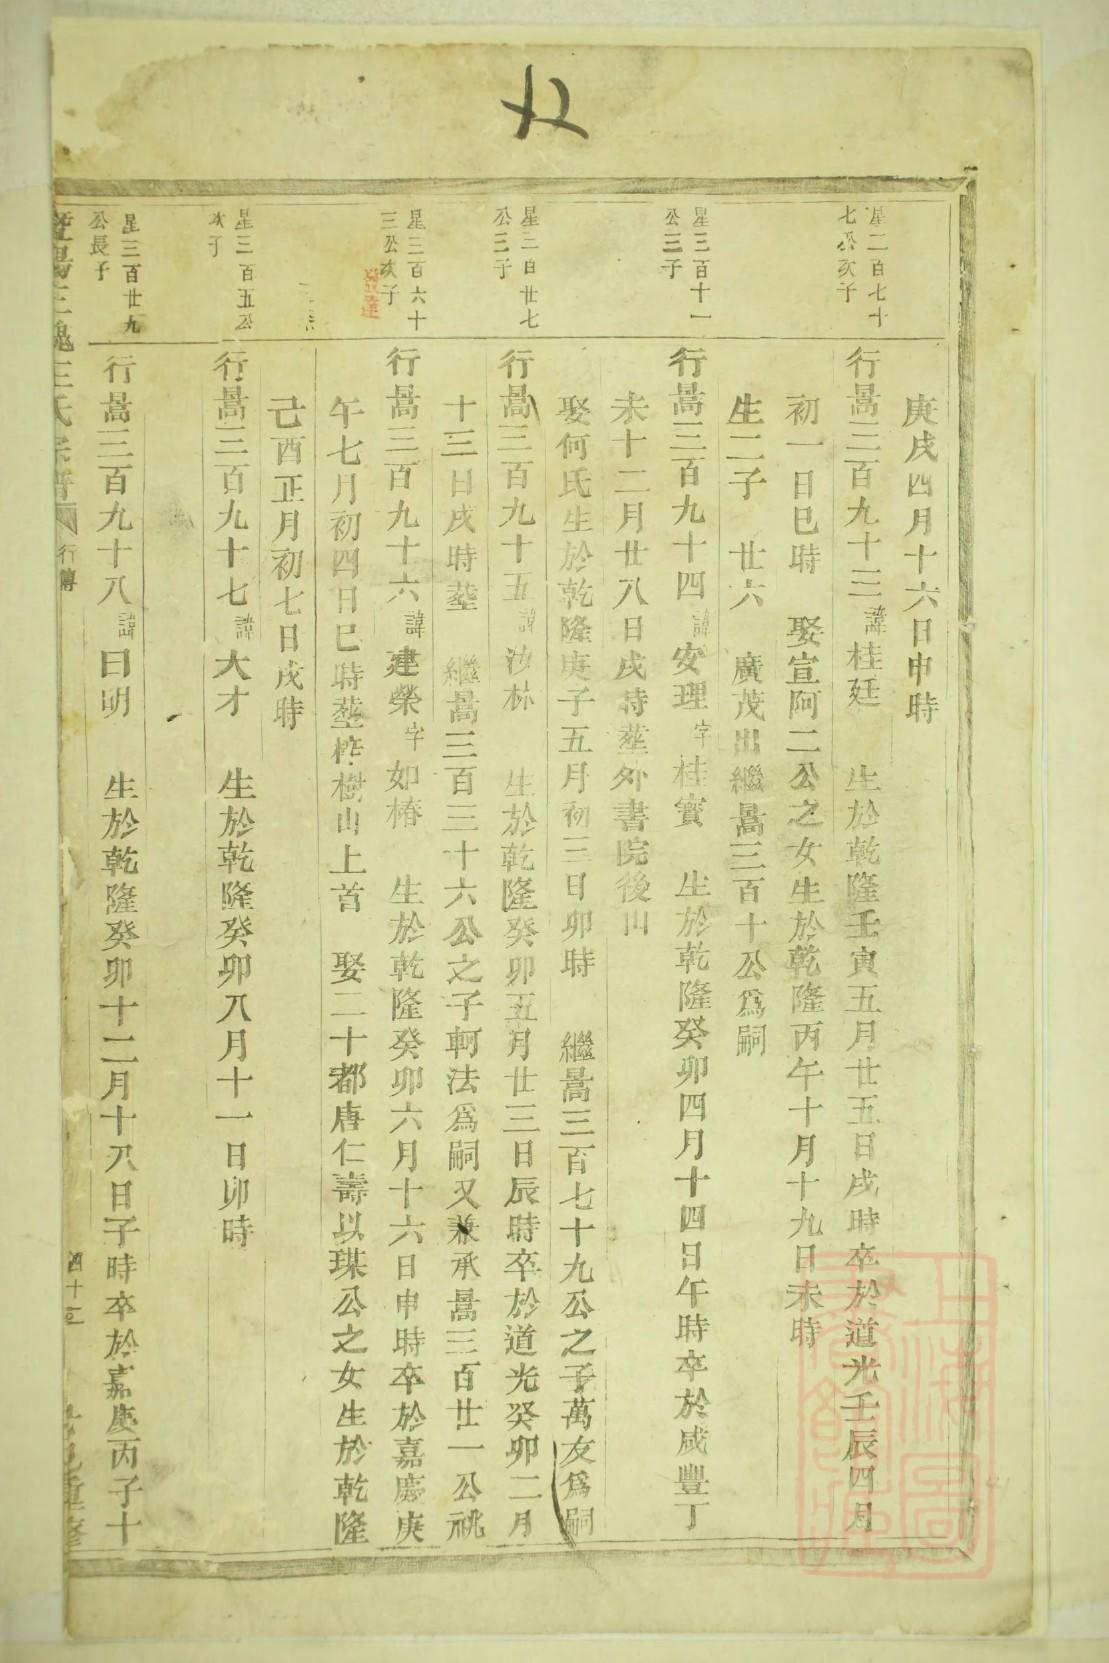 庚戌四月十六日申時
星二百七十
七公次子
行暠三百九十三諱桂廷 生於乾隆壬寅五月廿五日戌時卒於道光壬辰四月
初一日巳時 娶宣阿二公之女生於乾隆丙午十月十九日未時
生二子 廿六 廣茂出繼暠三百十公爲嗣
星三百十一
公三子
行暠三百九十四諱安理字桂實 生於乾隆癸卯四月十四日午時卒於咸豐丁
未十二月廿八日戌時塟外書院後山
娶何氏生於乾隆庚子五月初三日卯時 繼暠三百七十九公之子萬友爲嗣
星三百廿七
公三子
行暠三百九十五諱汝林 生於乾隆癸卯五月廿三日辰時卒於道光癸卯二月
十三日戌時塟 繼暠三百三十六公之子軻法爲嗣又兼承暠三百廿一公祧
星三百六十
三公次子
行暠三百九十六諱建榮字如椿 生於乾隆癸卯六月十六日申時卒於嘉慶庚
午七月初四日巳時塟柞樹山上首 娶二十都唐仁壽以璞公之女生於乾隆
己酉正月初七日戌時
星三百五公
次子
行暠三百九十七諱大才 生於乾隆癸卯八月十一日卯時
星三百廿九
公長子
行暠三百九十八諱曰明 生於乾隆癸卯十二月十八日子時卒於嘉慶丙子十
暨陽三槐王氏宗譜 行傳 重修